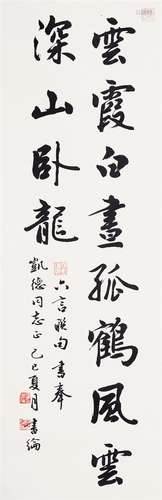 雲霞白晝孤鶴風雲
深山卧龍
六言聯句書奉
凱德同志正己巳夏月書綸